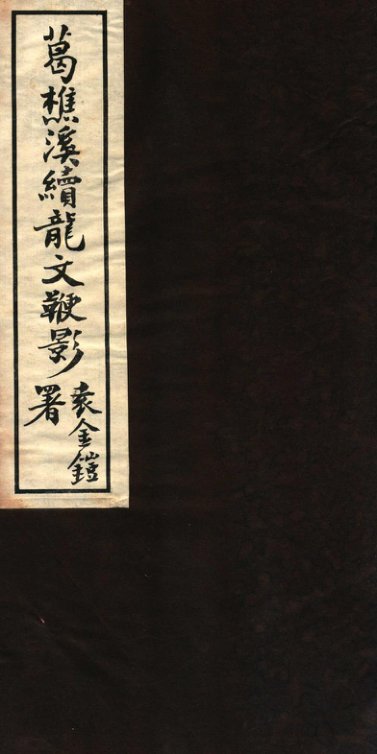 葛樵溪續龍文鞭影
袁金鎧署